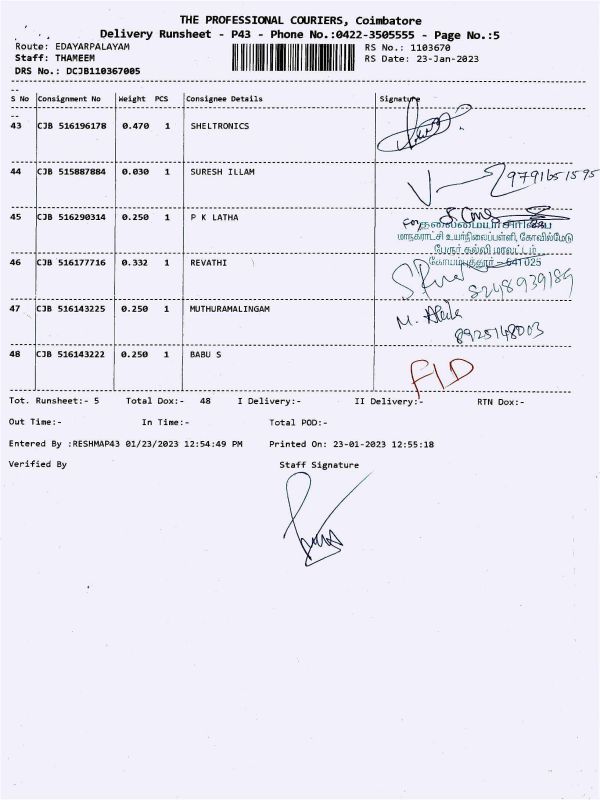 THE PROFESSIONAL COURIERS, Coimbatore
Delivery Runsheet - P43 - Phone No.:0422-3505555 - Page No.:5
Route: EDAYARPALAYAM RS No.: 1103670
Staff: THAMEEM RS Date: 23-Jan-2023
DRS No.: DCJB110367005
S No Consignment No Weight PCS Consignee Details Signature
43 CJB 516196178 0.470 1 SHELTRONICS
44 CJB 515887884 0.030 1 SURESH ILLAM
9791651595
45 CJB 516290314 0.250 1 P K LATHA
For
தலைமையாசிரியை
மாநகராட்சி உயர்நிலைப்பள்ளி, கோவில்மேடு
பேரூர் கல்வி மாவட்டம்
கோயம்புத்தூர் - 641 025
46 CJB 516177716 0.332 1 REVATHI
8248939189
47 CJB 516143225 0.250 1 MUTHURAMALINGAM
M.
8925148003
48 CJB 516143222 0.250 1 BABU S
FLD
Tot. Runsheet:- 5 Total Dox:- 48 I Delivery:- II Delivery:- RTN Dox:-
Out Time:- In Time:- Total POD:-
Entered By :RESHMAP43 01/23/2023 12:54:49 PM Printed On: 23-01-2023 12:55:18
Verified By Staff Signature